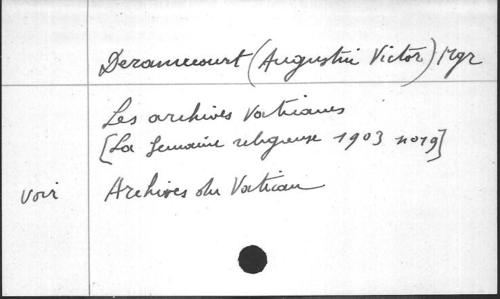 Deramecourt (Augustin Victor) Mgr
Les archives Vaticanes
[La Semaine religieuse 1903 no 19]
voir Archives du Vatican